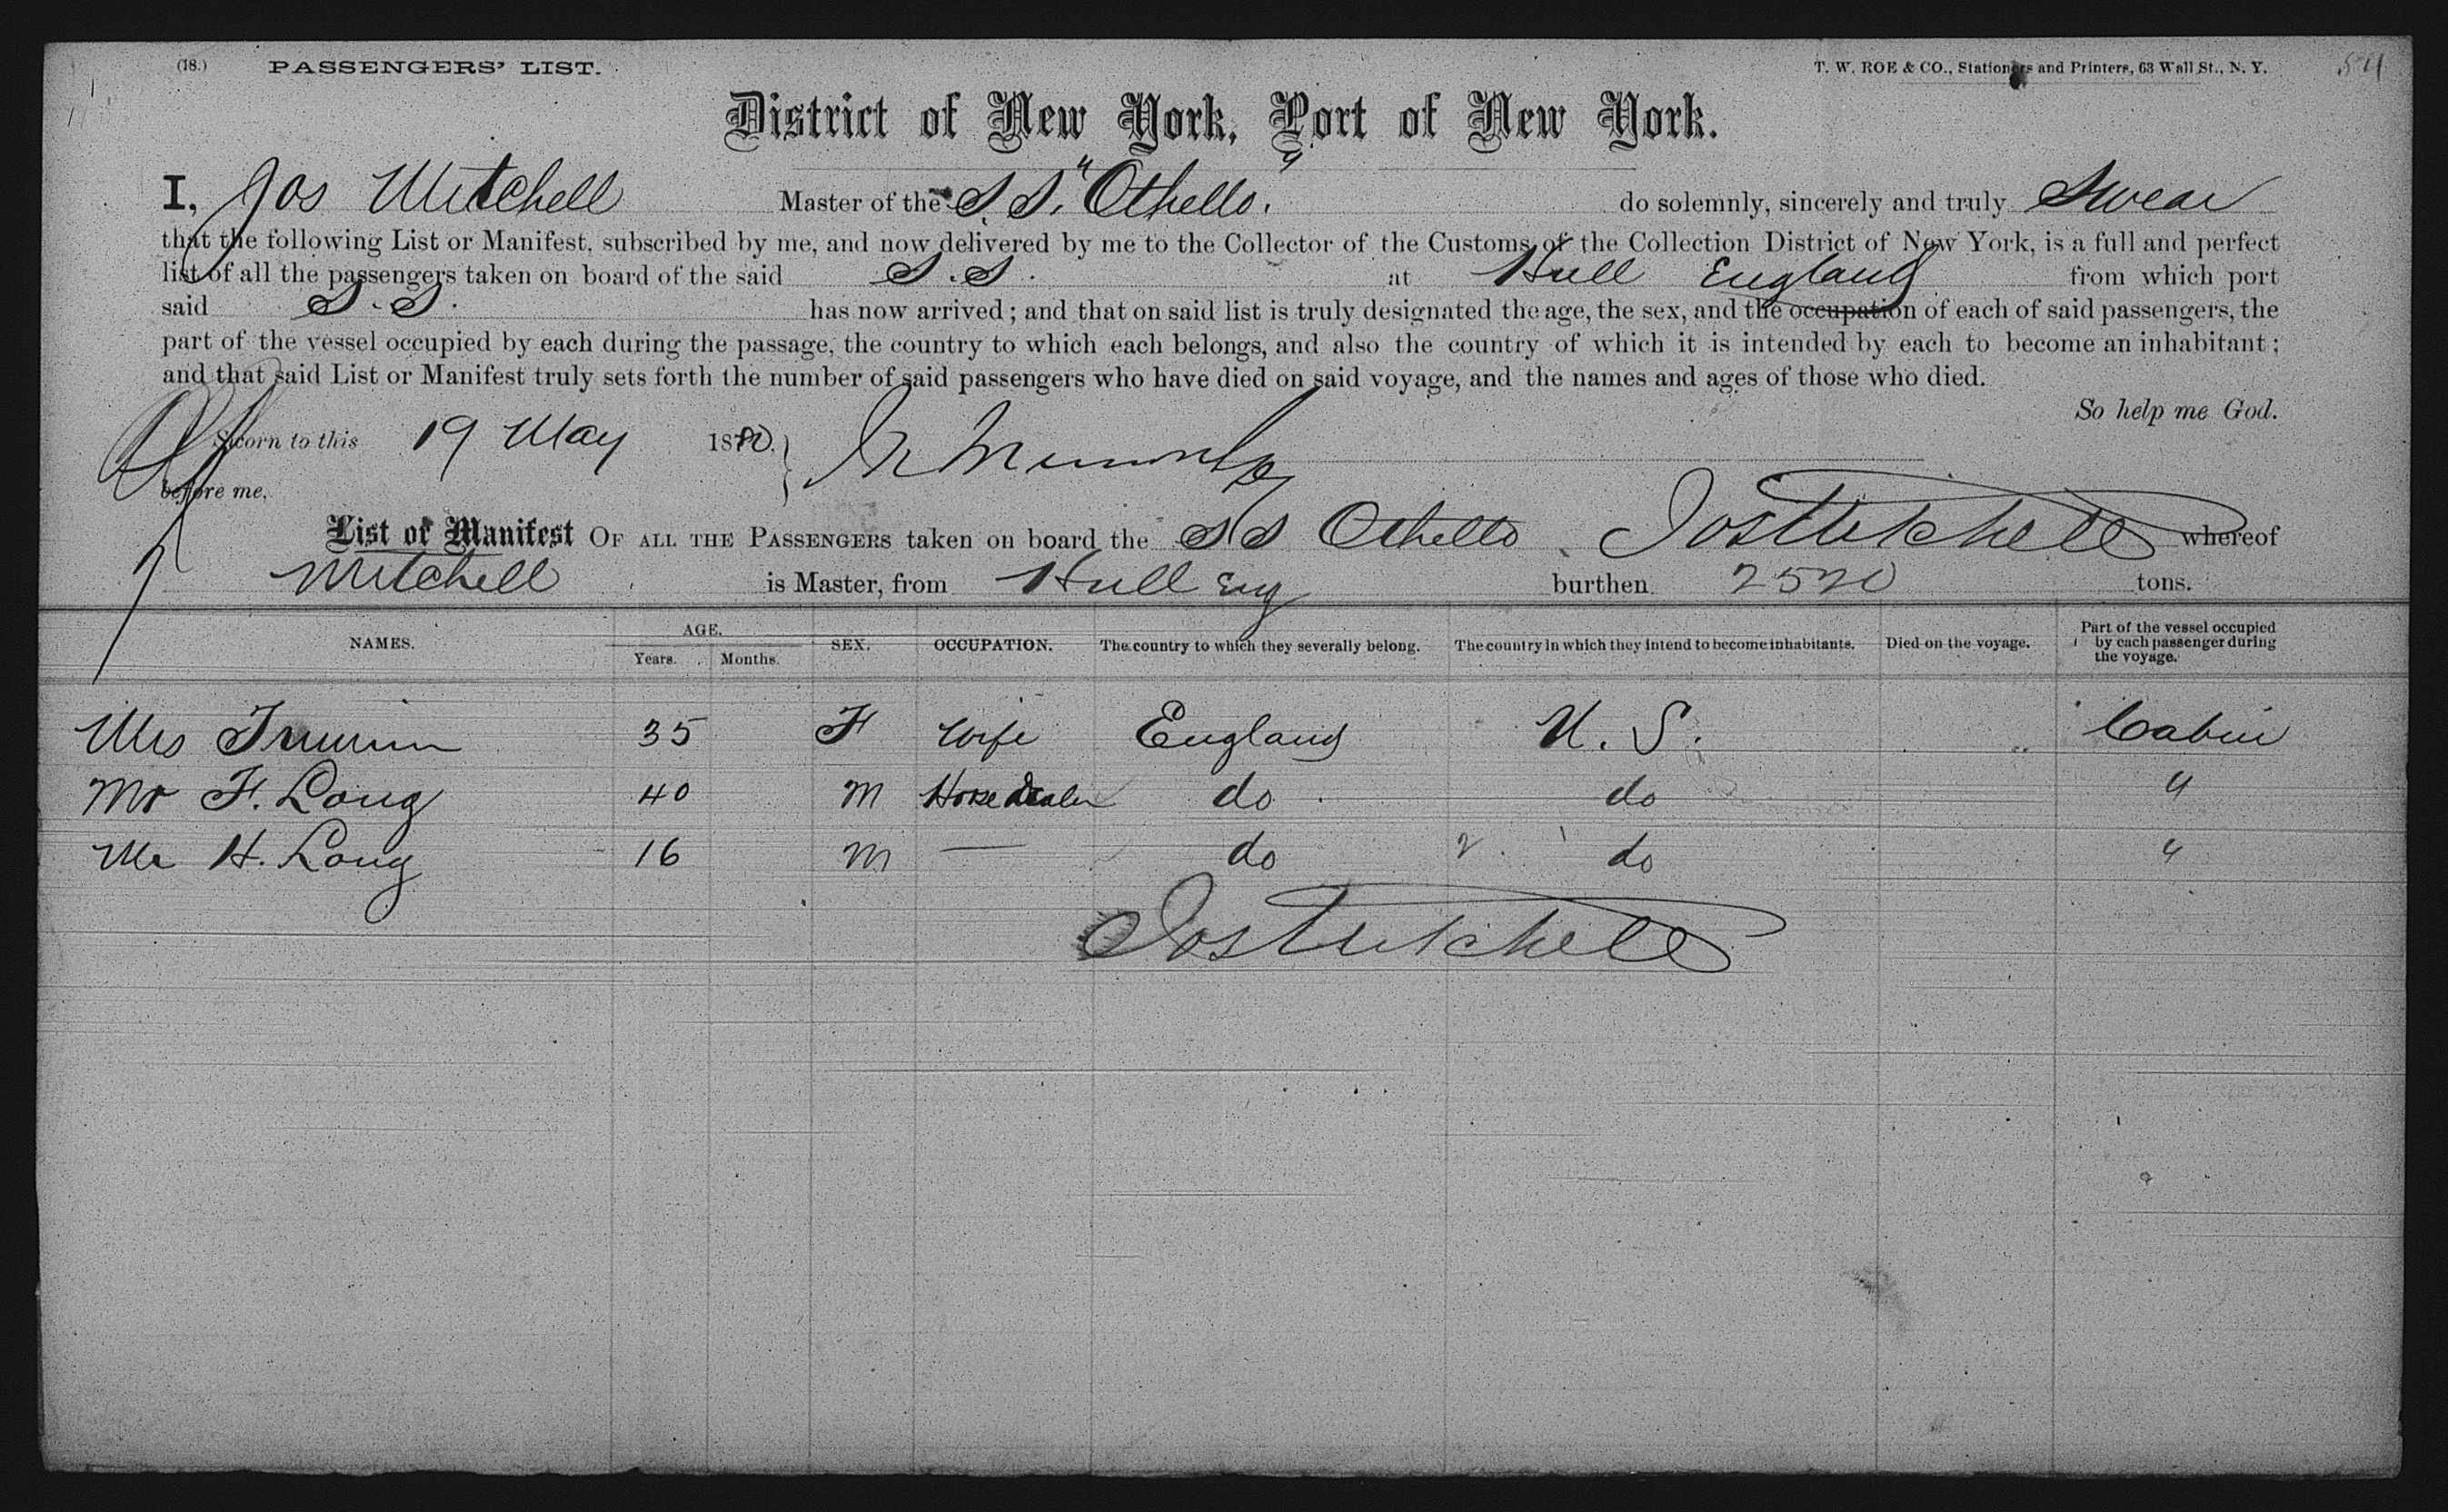 (18.) PASSENGERS' LIST. T. W. ROE & CO., Stationers and Printers, 63 Wall St., N. Y. 54
District of New York, Port of New York.
I, Jos Mitchell Master of the S.S. "Othello." do solemnly, sincerely and truly Swear
that the following List or Manifest, subscribed by me, and now delivered by me to the Collector of the Customs of the Collection District of New York, is a full and perfect
list of all the passengers taken on board of the said S.S. at Hull England from which port
said S.S. has now arrived; and that on said list is truly designated the age, the sex, and the occupation of each of said passengers, the
part of the vessel occupied by each during the passage, the country to which each belongs, and also the country of which it is intended by each to become an inhabitant;
and that said List or Manifest truly sets forth the number of said passengers who have died on said voyage, and the names and ages of those who died.
So help me God.
Sworn to this 19 May 1880.
before me,
List or Manifest OF ALL THE PASSENGERS taken on board the SS Othello Jos Mitchell whereof
Mitchell is Master, from Hull Eng burthen 2520 tons.
NAMES. AGE. Years. Months. SEX. OCCUPATION. The country to which they severally belong. The country in which they intend to become inhabitants. Died on the voyage. Part of the vessel occupied by each passenger during the voyage.
Mrs 35 F Wife England U.S. Cabin
Mr F. Long 40 M Horse dealer do do "
Mr H. Long 16 M — do 2 do "
Jos Mitchell